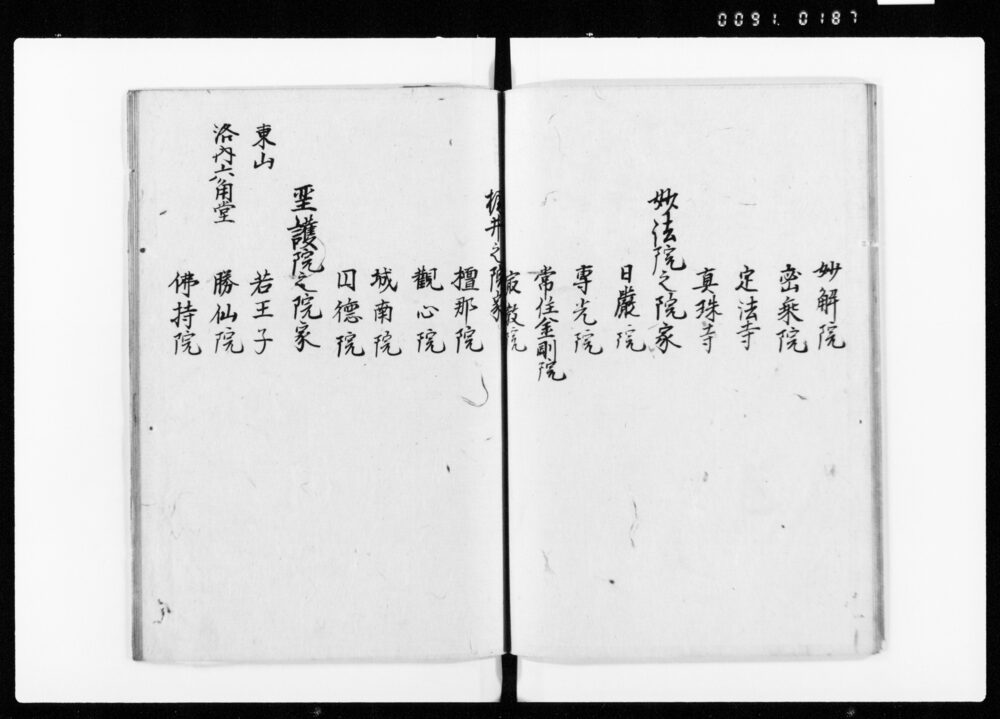 0091.0187
妙解院
密乗院
定法寺
真珠寺
妙法院之院家
日嚴院
專光院
常住金剛院
梶井之院家
檀那院
觀心院
城南院
因德院
聖護院之院家
東山 若王子
洛内六角堂 勝仙院
佛持院